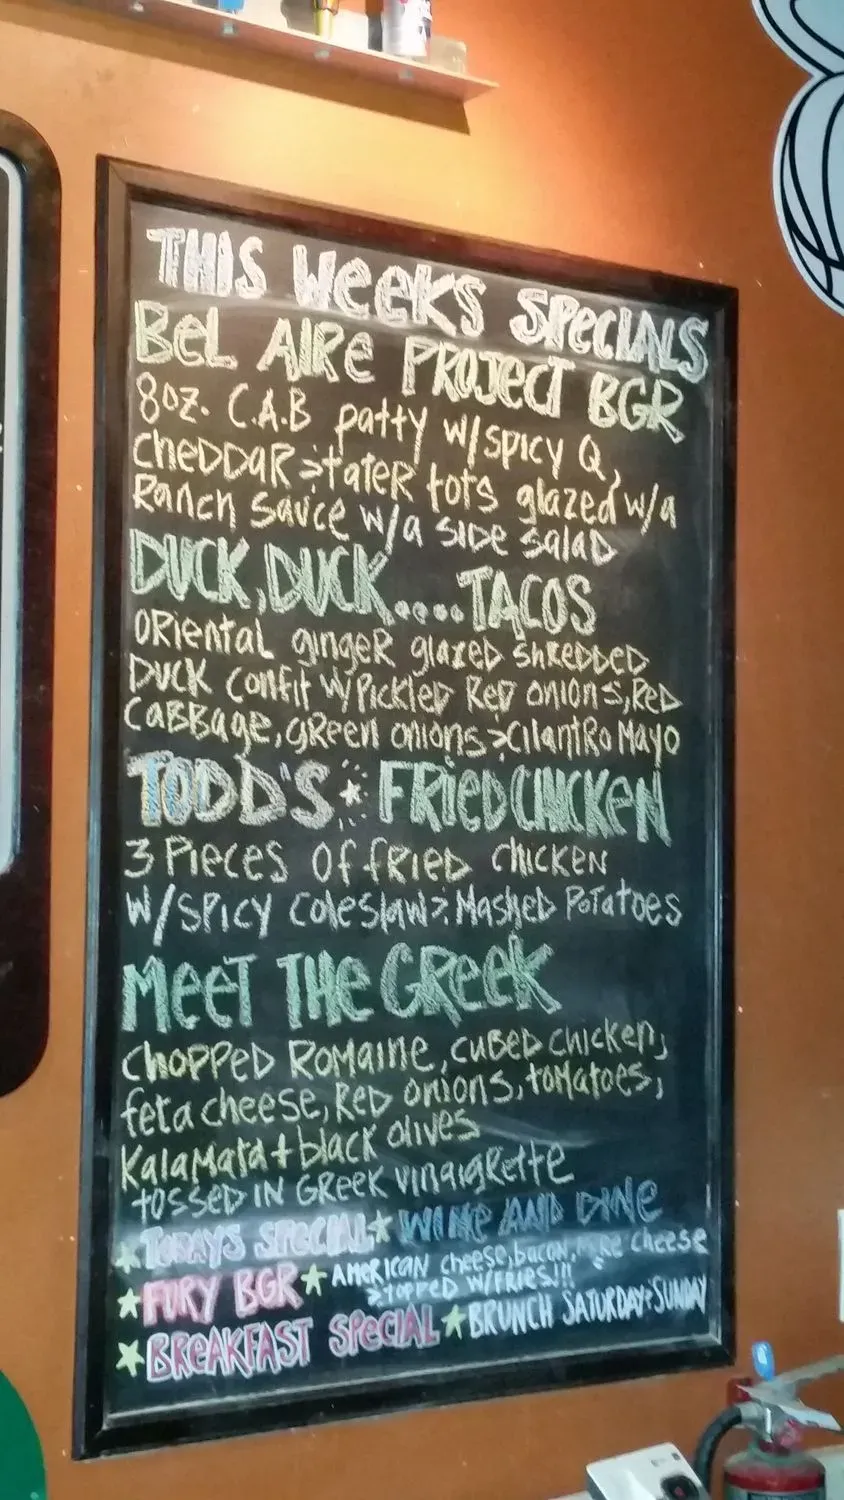 THIS WEEKS SPECIALS
BEL AIRE PROJECT BGR
8oz. C.A.B patty w/spicy Q,
CHEDDAR & tater tots glazed w/a
Ranch sauce w/a side salad
DUCK, DUCK....TACOS
ORIENTAL gingeR glazed shredded
Duck confit w/Pickled Red onions, Red
Cabbage, green onions & cilantro Mayo
TODD'S FRIED CHICKEN
3 Pieces of fried chicken
w/spicy coleslaw & Mashed Potatoes
MEET THE GREEK
Chopped Romaine, cubed chicken,
feta cheese, Red onions, tomatoes,
Kalamata + black olives
tossed in Greek vinaigrette
TODAYS SPECIAL WINE AND DINE
FURY BGR AMERICAN cheese, bacon, more cheese
& topped w/fries!!!
BREAKFAST SPECIAL BRUNCH SATURDAY & SUNDAY